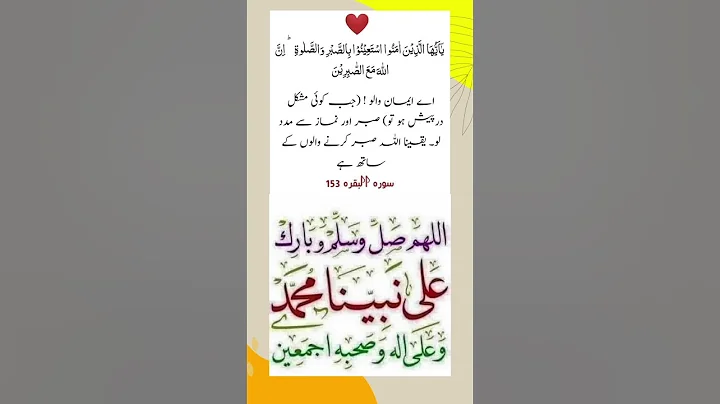 یٰۤاَیُّهَا الَّذِیْنَ اٰمَنُوا اسْتَعِیْنُوْا بِالصَّبْرِ وَالصَّلٰوةِ ؕ اِنَّ
اللّٰهَ مَعَ الصّٰبِرِیْنَ
اے ایمان والو ! (جب کوئی مشکل
درپیش ہو تو) صبر اور نماز سے مدد
لو۔ یقینا اللہ صبر کرنے والوں کے
ساتھ ہے
سورہ البقرہ 153
اللهم صَلِّ وَسَلِّمْ وَبَارِك
عَلى نَبِيِّنَا مُحَمَّد
وَعَلى اله وَصَحبِهِ اجمَعِين